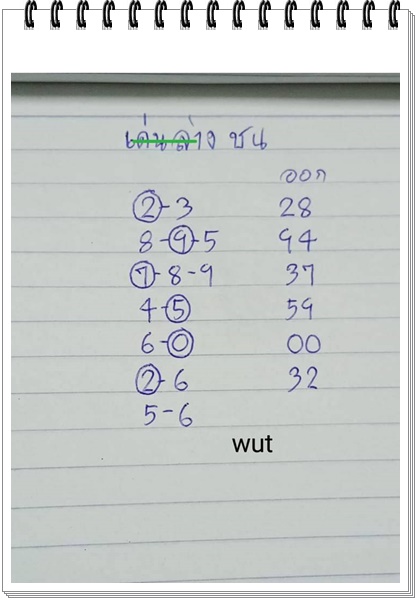 เด่นล่าง ชน
ออก
2-3 28
8-9-5 94
7-8-9 37
4-5 59
6-0 00
2-6 32
5-6
wut